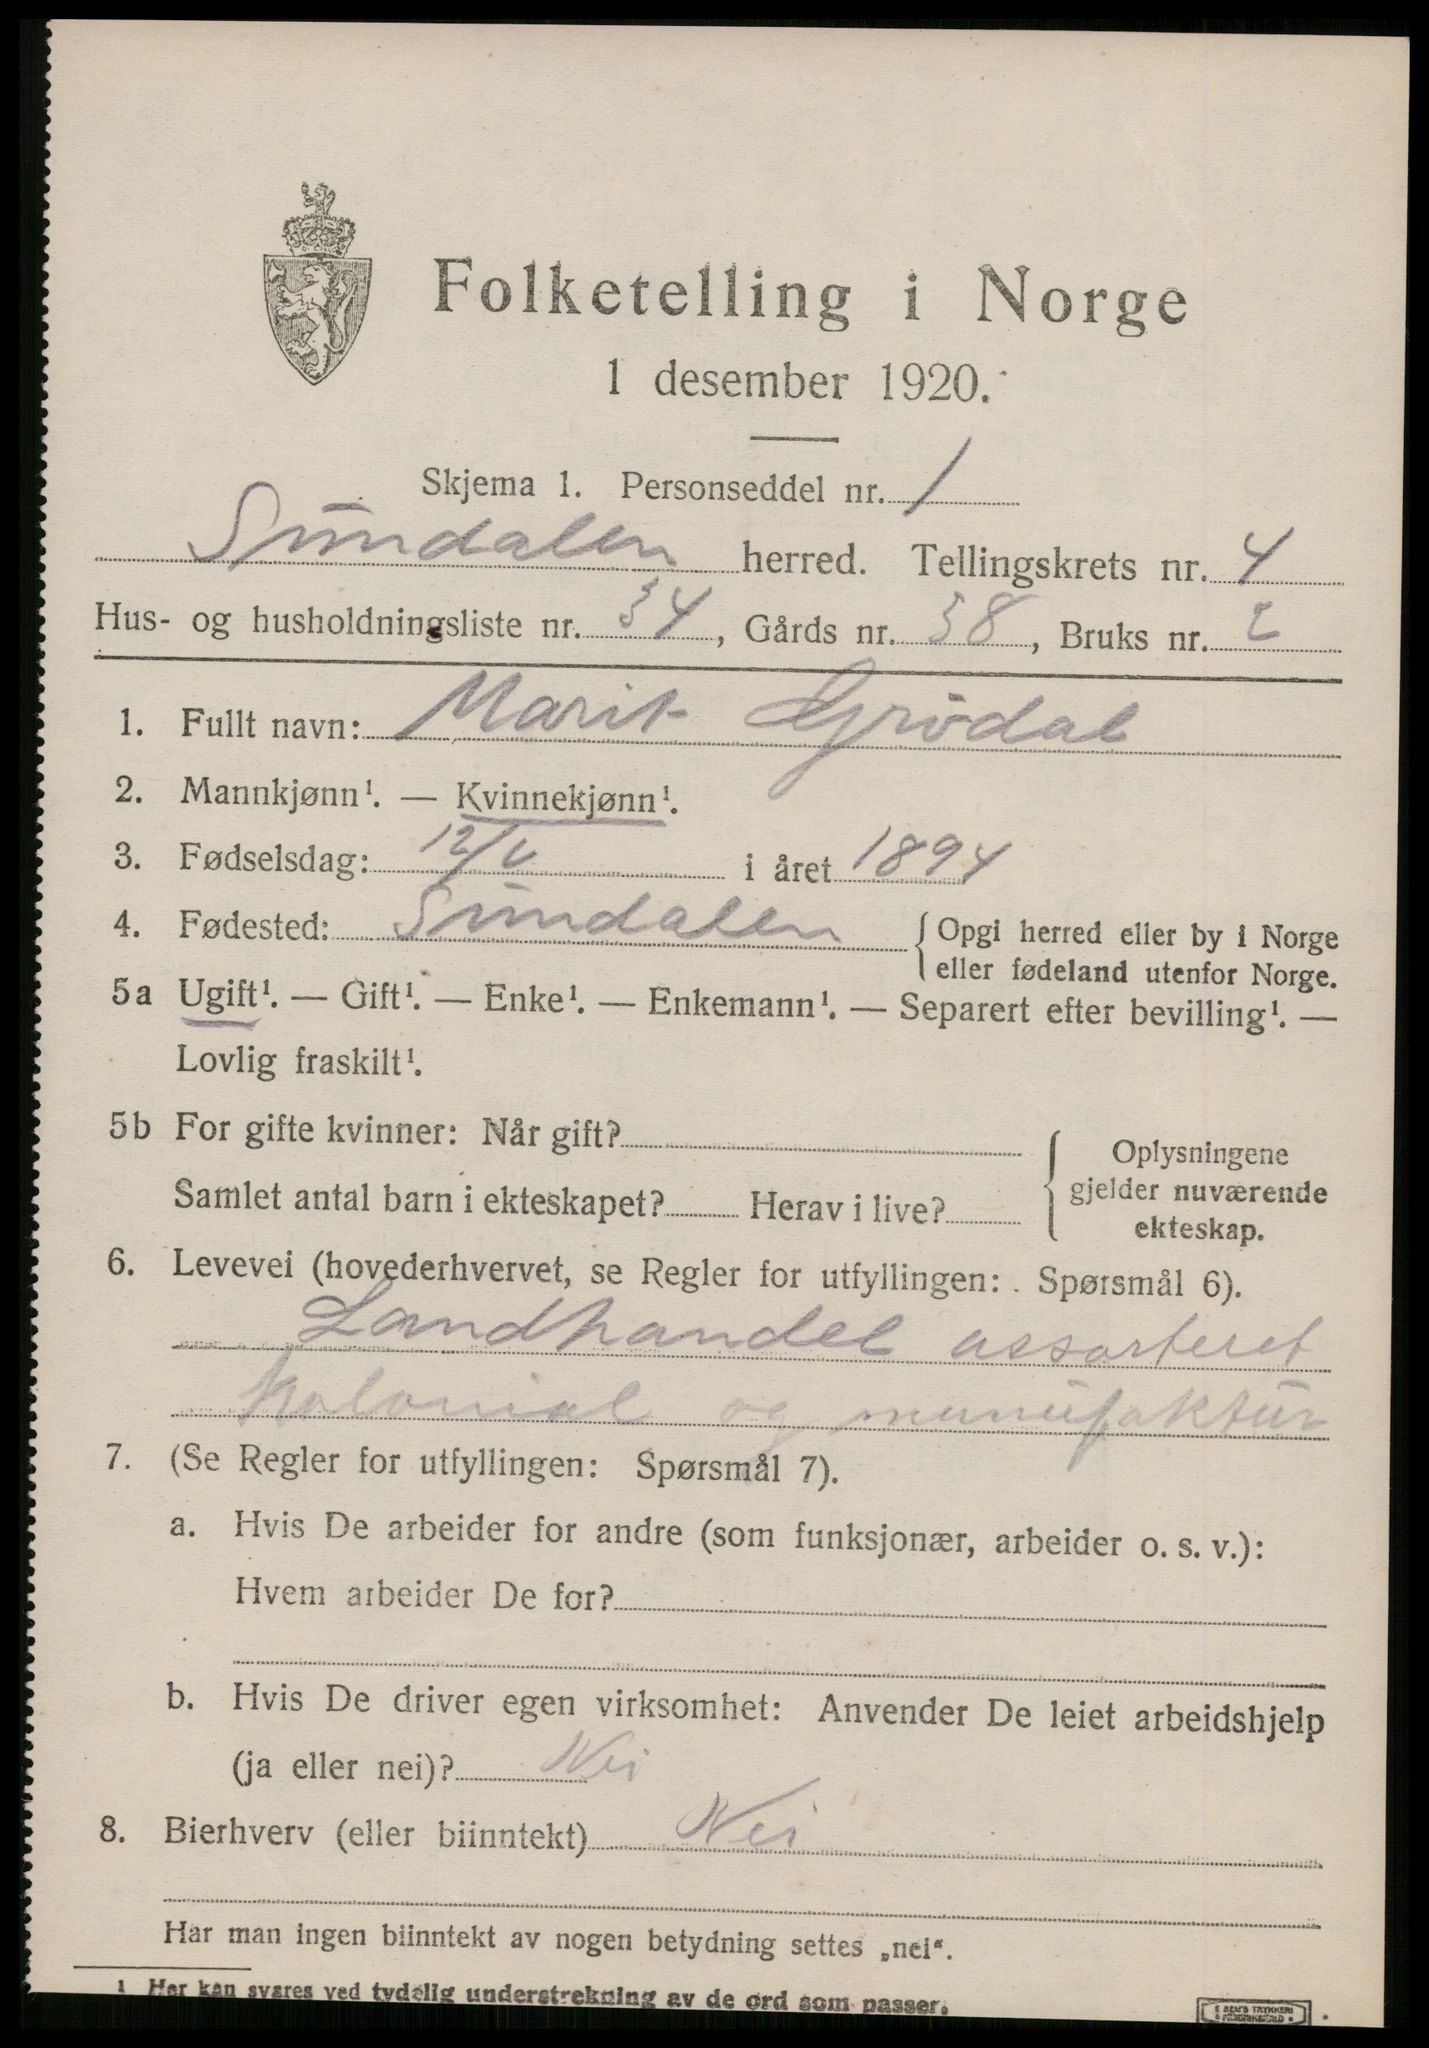 Folketelling i Norge
1 desember 1920.
Skjema 1. Personseddel nr. 1
Sundalen herred. Tellingskrets nr. 4
Hus- og husholdningsliste nr. 34, Gårds nr. 38, Bruks nr. 2
1. Fullt navn: Marit Grödal
2. Mannkjønn¹. — Kvinnekjønn¹.
3. Fødselsdag: 12/ i året 1894
4. Fødested: Sundalen { Opgi herred eller by i Norge
eller fødeland utenfor Norge.
5a Ugift¹. — Gift¹. — Enke¹. — Enkemann¹. — Separert efter bevilling¹. —
Lovlig fraskilt¹.
5b For gifte kvinner: Når gift?
Samlet antal barn i ekteskapet? Herav i live?
{ Oplysningene
gjelder nuværende
ekteskap.
6. Levevei (hovederhvervet, se Regler for utfyllingen: Spørsmål 6).
Landhandel assorteret
kolonial og manufaktur
7. (Se Regler for utfyllingen: Spørsmål 7).
a. Hvis De arbeider for andre (som funksjonær, arbeider o. s. v.):
Hvem arbeider De for?
b. Hvis De driver egen virksomhet: Anvender De leiet arbeidshjelp
(ja eller nei)? Nei
8. Bierhverv (eller biinntekt) Nei
Har man ingen biinntekt av nogen betydning settes „nei“.
1 Her kan svares ved tydelig understrekning av de ord som passer.